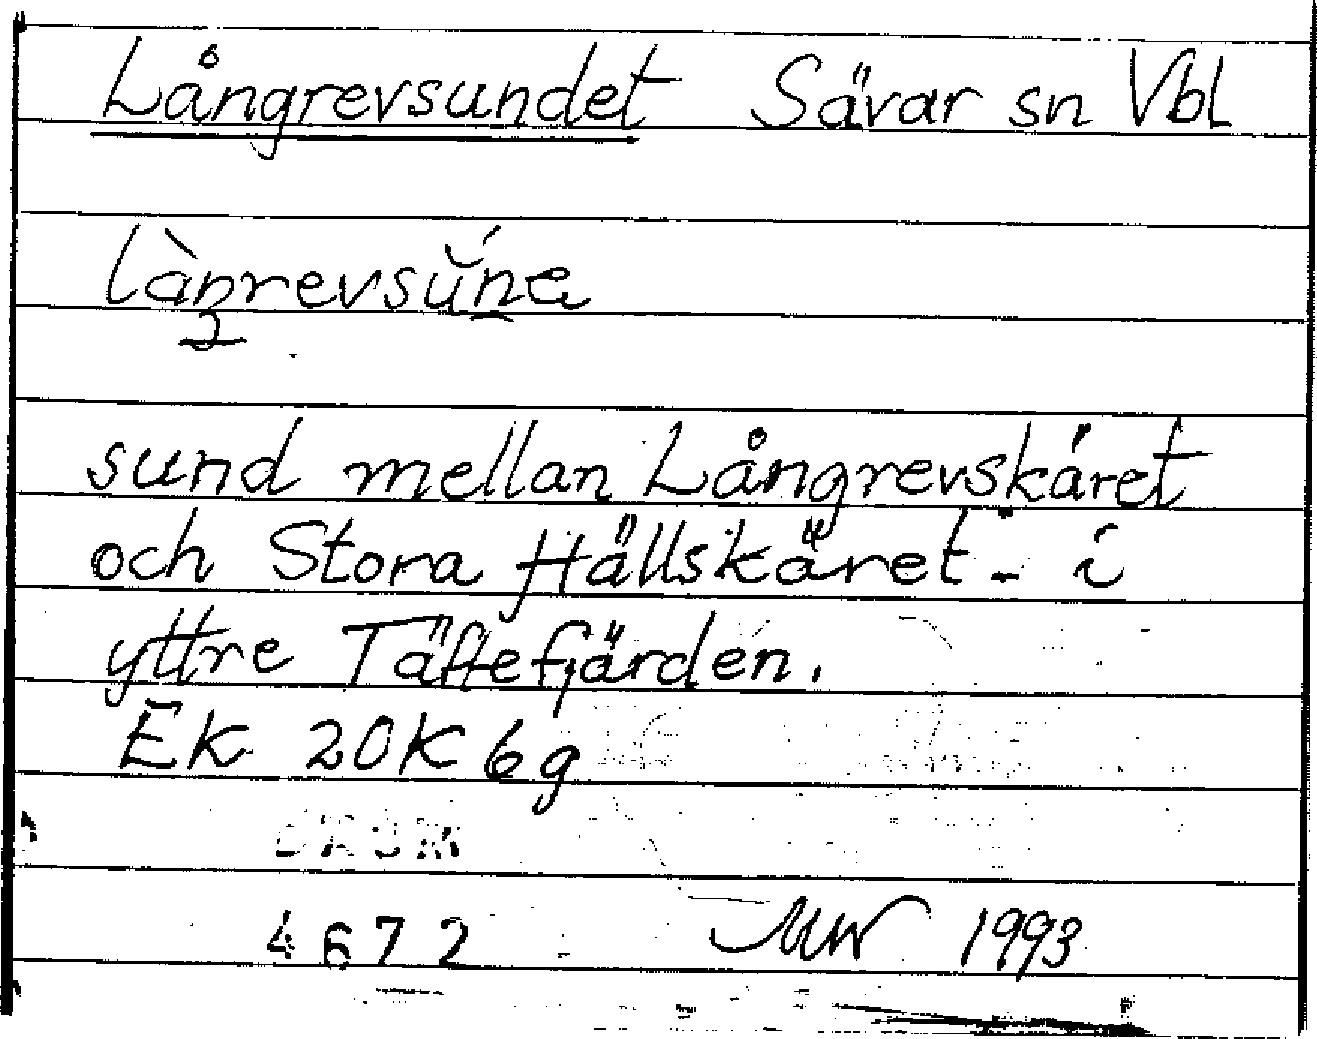 Långrevsundet Sävar sn Vbl
sund mellan Långrevskäret
och Stora Hällskäret - i
yttre Täftefjärden.
Ek 20K 6g
4672 MW 1993